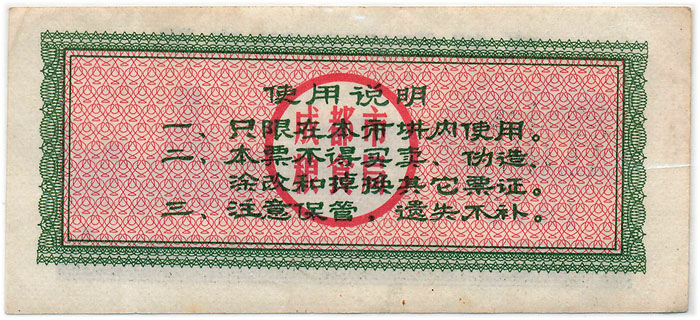 使用说明
一、只限在本市境内使用。
二、本票不得买卖、伪造、
涂改和掉换其它票证。
三、注意保管，遗失不补。
成都市